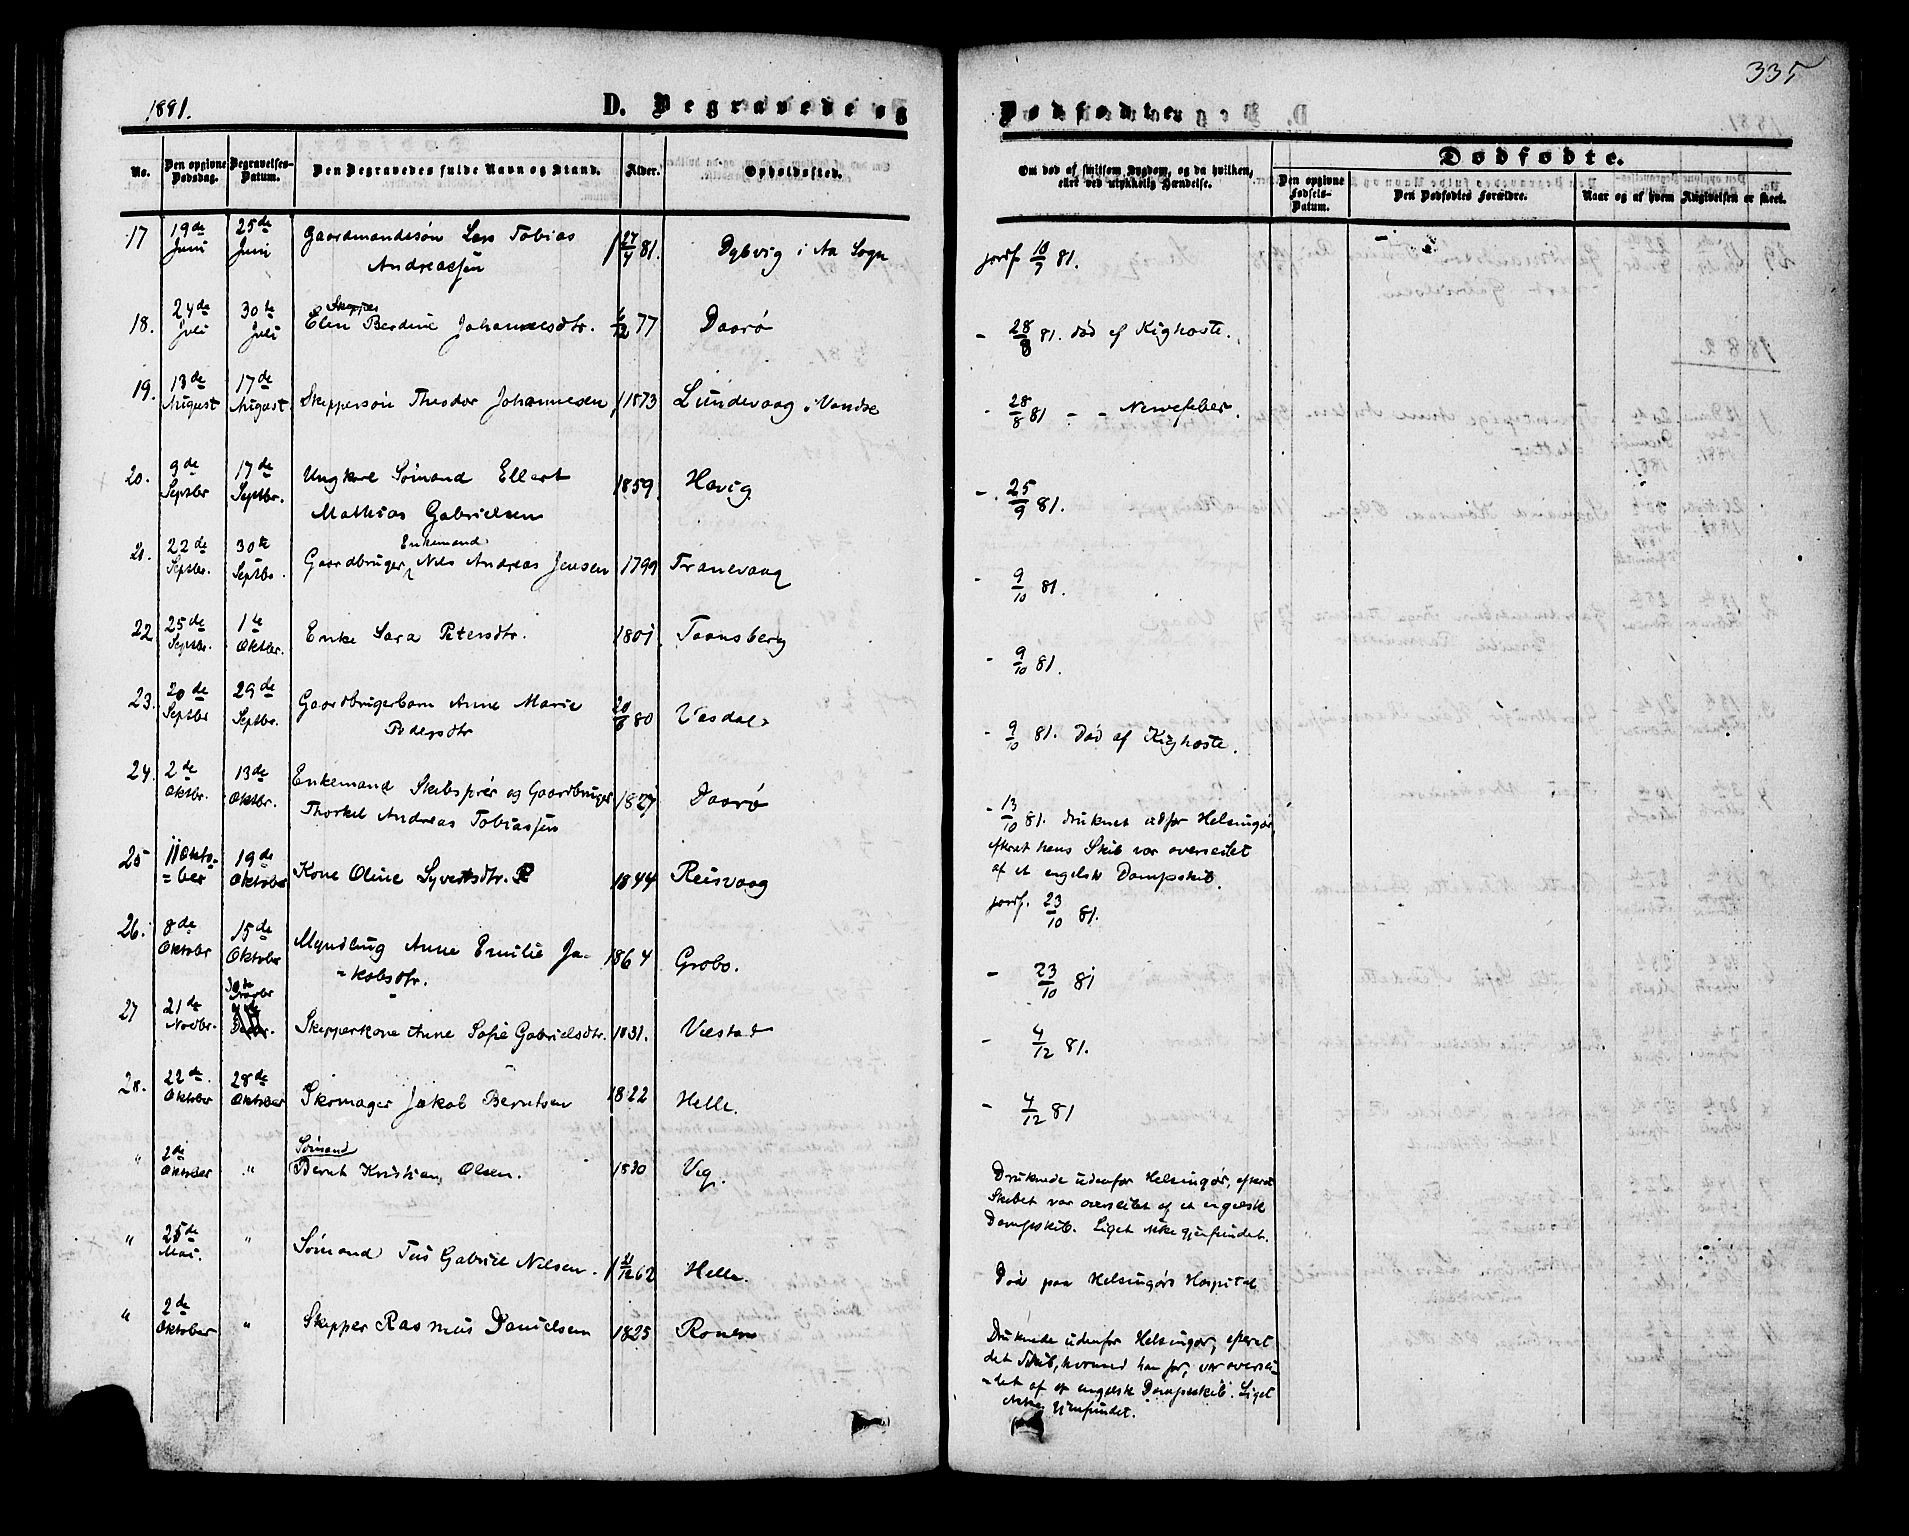 335
1881.
D. Begravede og
Dødfødte.
No.
Den opgivne Dødsdag.
Begravelses-Datum.
Den Begravedes fulde Navn og Stand.
Alder.
Opholdssted.
Om død af smitsom Sygdom, og da hvilken, eller ved ulykkelig Hændelse.
Dødfødte.
Den opgivne Fødsels-Datum.
Den Dødfødtes Forældre.
Naar og af hvem Angivelsen er skeet.
17 19de Juni 25de Juni Gaardmandssøn Lars Tobias Andreassen 27/4 81. Dybvig i Aa Sogn jordf. 10/7 81.
18. 24de Juli 30te Juli Skippers Elen Berdine Johannesdtr. 6/12 77 Daarø - 28/8 81. død af Kighoste.
19. 13de August 17de August Skippersøn Theodor Johannesen 1873 Lundevaag i Vandsø - 28/8 81 - - Nervefeber.
20. 9de Septbr 17de Septbr. Ungkarl Sømand Ellert Mathias Gabrielsen 1859 Havig - 25/9 81.
21. 22de Septbr. 30te Septbr. Gaardbruger Enkemand Nils Andreas Jensen 1799 Tranevaag - 9/10 81.
22 25de Septbr. 1te Oktbr. Enke Sara Petersdtr. 1801. Taansberg - 9/10 81.
23. 20de Septbr 29de Septbr. Gaardbrugerbarn Anne Marie Pedersdtr 20/8 80 Vasdal - 9/10 81. Død af Kighoste.
24. 2de Oktbr. 13de Oktbr. Enkemand Skibsfører og Gaardbruger Thorkel Andreas Tobiassen 1827 Daarø - 13/10 81. druknet udfor Helsingør, efterat hans Skib var overseilet af et engelsk Dampskib.
25 11 Okto=ber 19de Oktober Kone Oline Syvertsdtr. 1844 Reisvaag jordf. 23/10 81.
26. 8de Oktober 15de Oktober Myndling Anne Emilie Ja=kobsdtr. 1864 Grobo. - 23/10 81
27 21de Novbr. 30te Novbr Skipperkone Anne Sofie Gabrielsdtr. 1831. Vestad - 4/12 81.
28. 22de Oktober 28de Oktober Skomager Jakob Berntsen 1822 Helle. - 4/12 81
" 2de Oktober " Sømand Bernt Kristian Olsen. 1830 Vig. Druknede udenfor Helsingør, efterat Skibet var overseilet af et engelsk Dampskib. Liget ikke gjenfundet.
" 25de Mai. " Sømand Ties Gabriel Nilsen. 11/12 62 Helle. Død paa Helsingørs Hospital
" 2de Oktober " Skipper Rasmus Danielsen 1825 Ronens Druknede udenfor Helsingør, efterat det Skib, hvormed han for, var oversei=let af et engelsk Dampskib. Liget ikke gjenfundet.